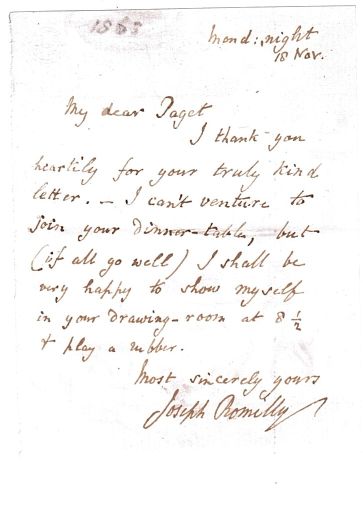 1863
Mond: night
18 Nov.
My dear Paget
I thank you
heartily for your truly kind
letter. – I can't venture to
join your dinner-table, but
(if all go well) I shall be
very happy to show myself
in your drawing-room at 8 ½
& play a rubber.
Most sincerely yours
Joseph Romilly